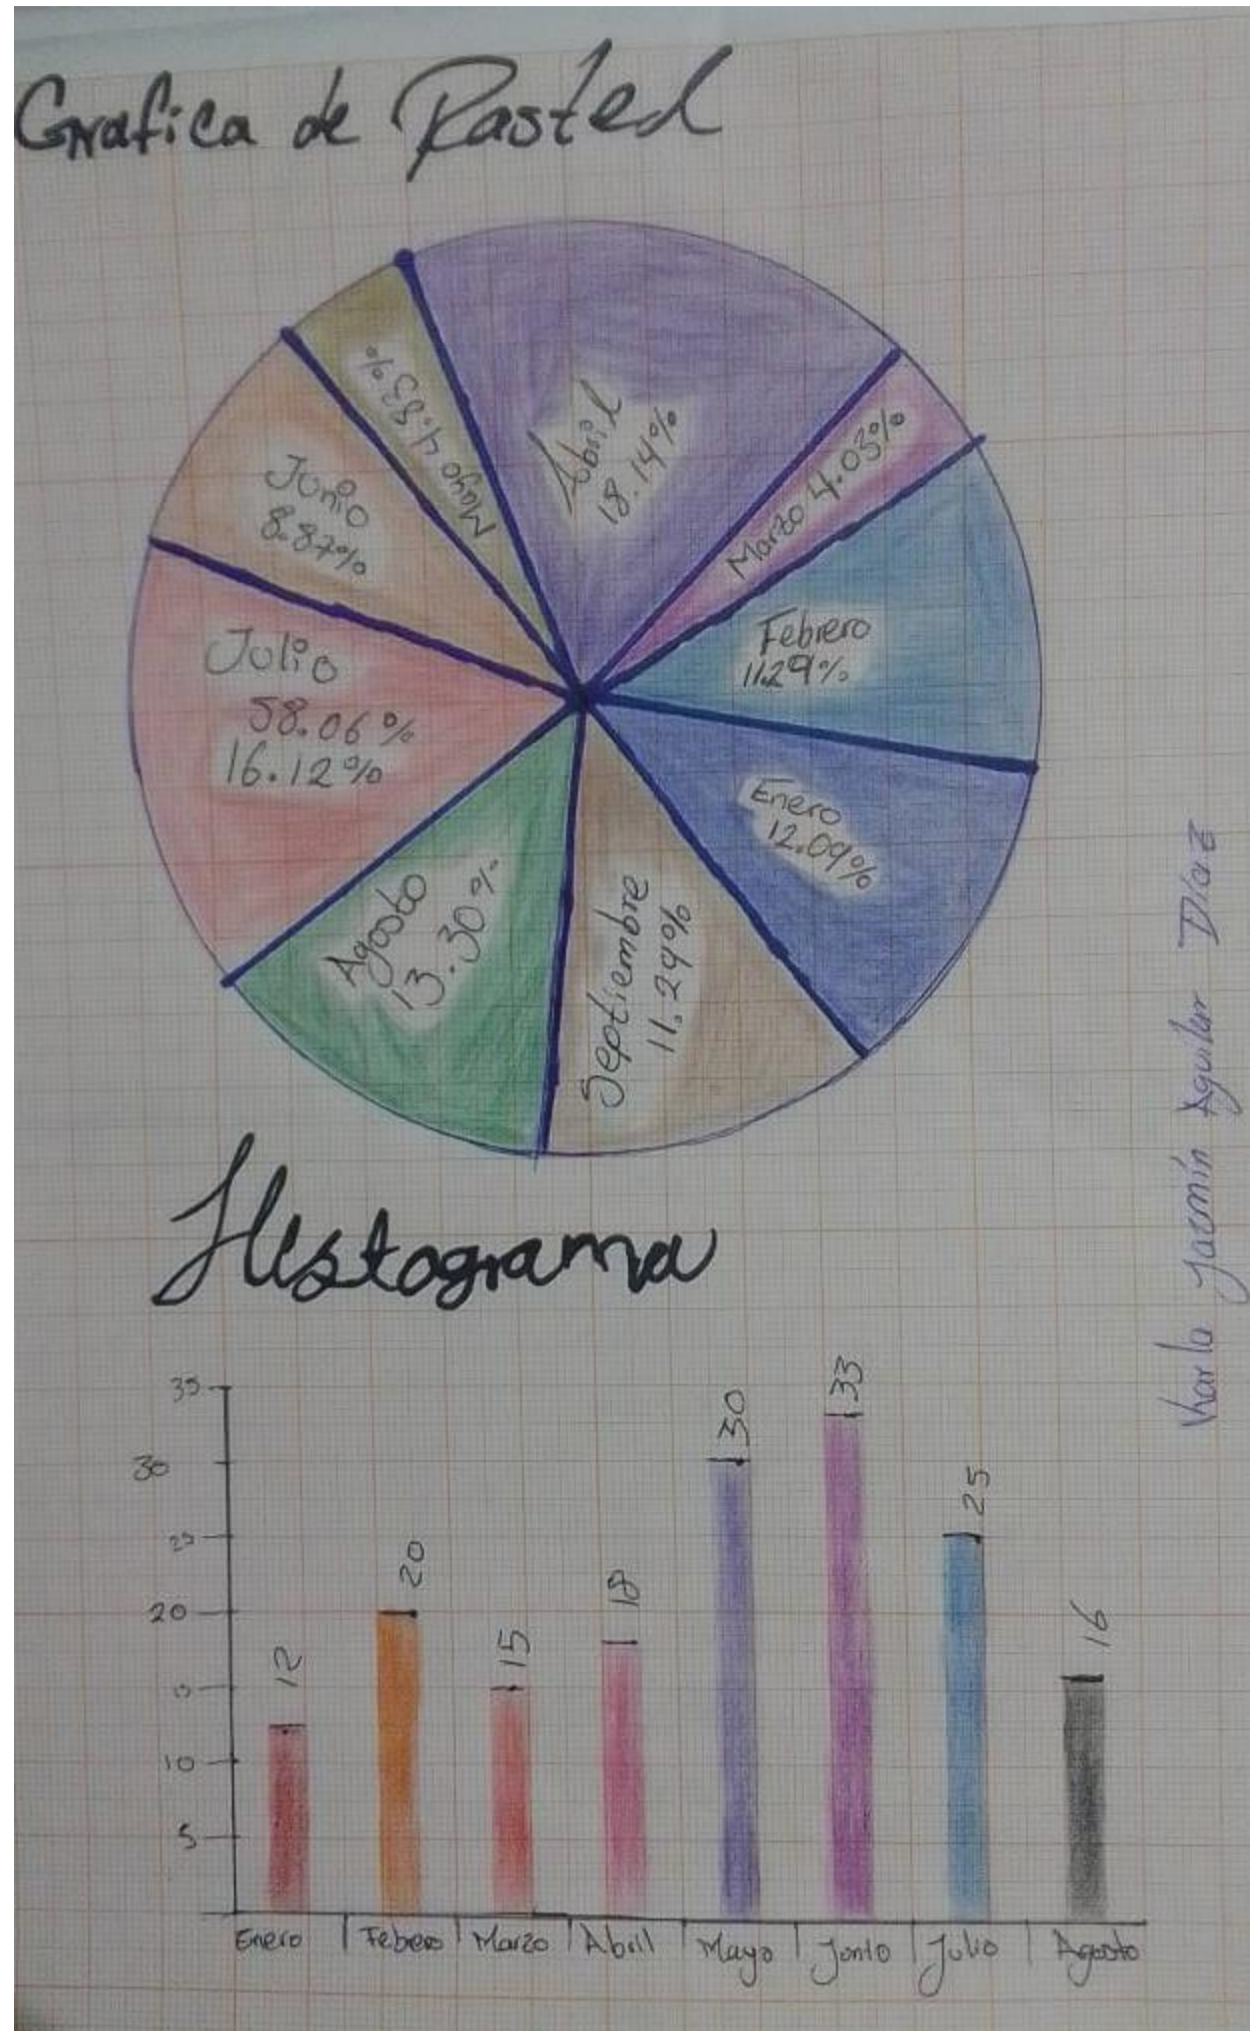 Grafica de Pastel
Abril
18.14%
Marzo 4.03%
Febrero
11.29%
Enero
12.09%
Septiembre
11.29%
Agosto
13.30%
Julio
58.06%
16.12%
Junio
8.87%
Mayo 4.83%
Karla Jazmín Aguilar Díaz
Histograma
35
30
25
20
10
5
12
20
15
18
30
33
25
16
Enero
Febero
Marzo
Abril
Mayo
Junio
Julio
Agosto